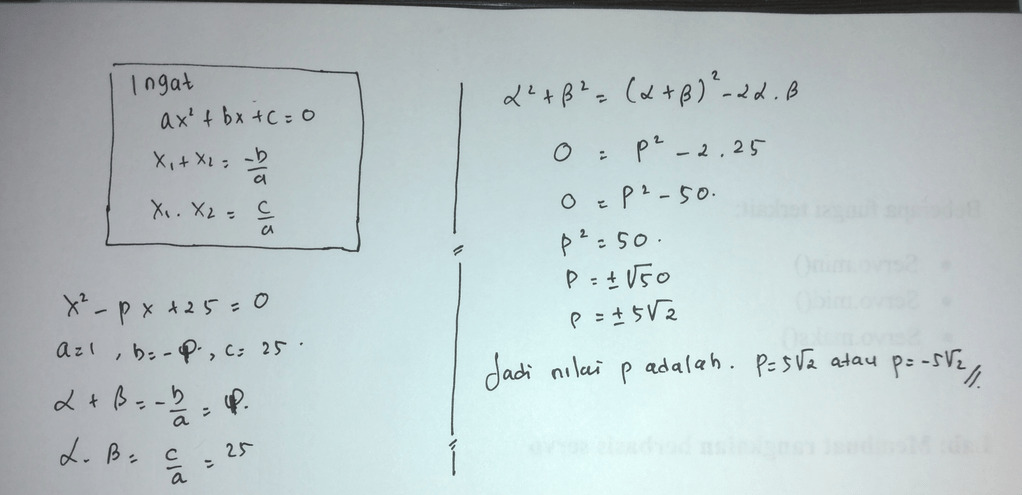 Ingat
ax² + bx + c = 0
x₁ + x₂ = -b/a
x₁ . x₂ = c/a
x² - px + 25 = 0
a=1 , b=-p , c= 25 .
α + β = -b/a = p.
α . β = c/a = 25
α² + β² = (α + β)² - 2α . β
0 = p² - 2 . 25
0 = p² - 50.
p² = 50 .
p = ± √50
p = ± 5√2
Jadi nilai p adalah . p = 5√2 atau p = -5√2 //.